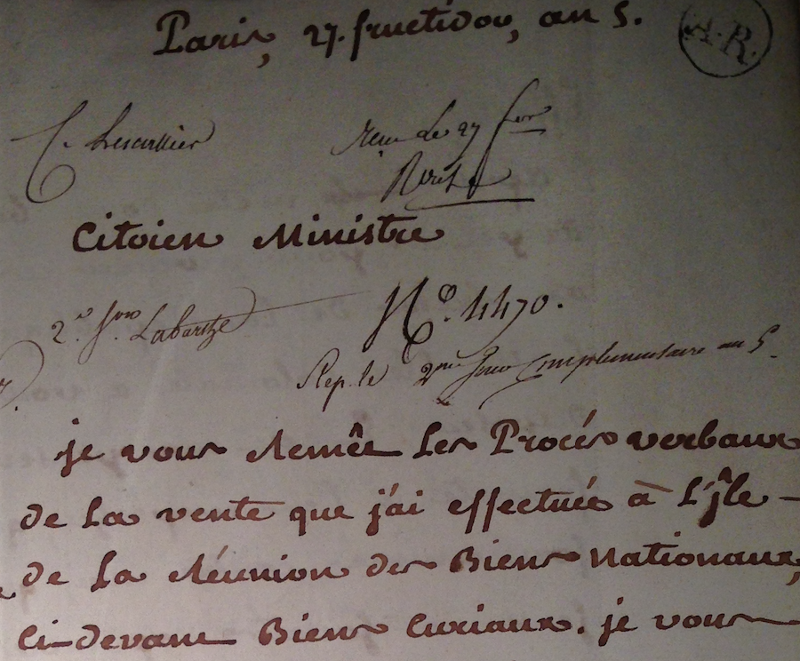 Paris, 27. fructidor, an 5.
A.R.
C. Lescallier
Reçu le 27 f.dor
Citoien Ministre
2.e J.on Labarthe
N.o 4470.
Rep. le 2.me Jour Complementaire an 5.
je vous remêt les Procés verbaux
de la vente que j'ai effectuée à L'jle
de la Réunion des Biens nationaux,
Ci-devant Biens Curiaux. je vous